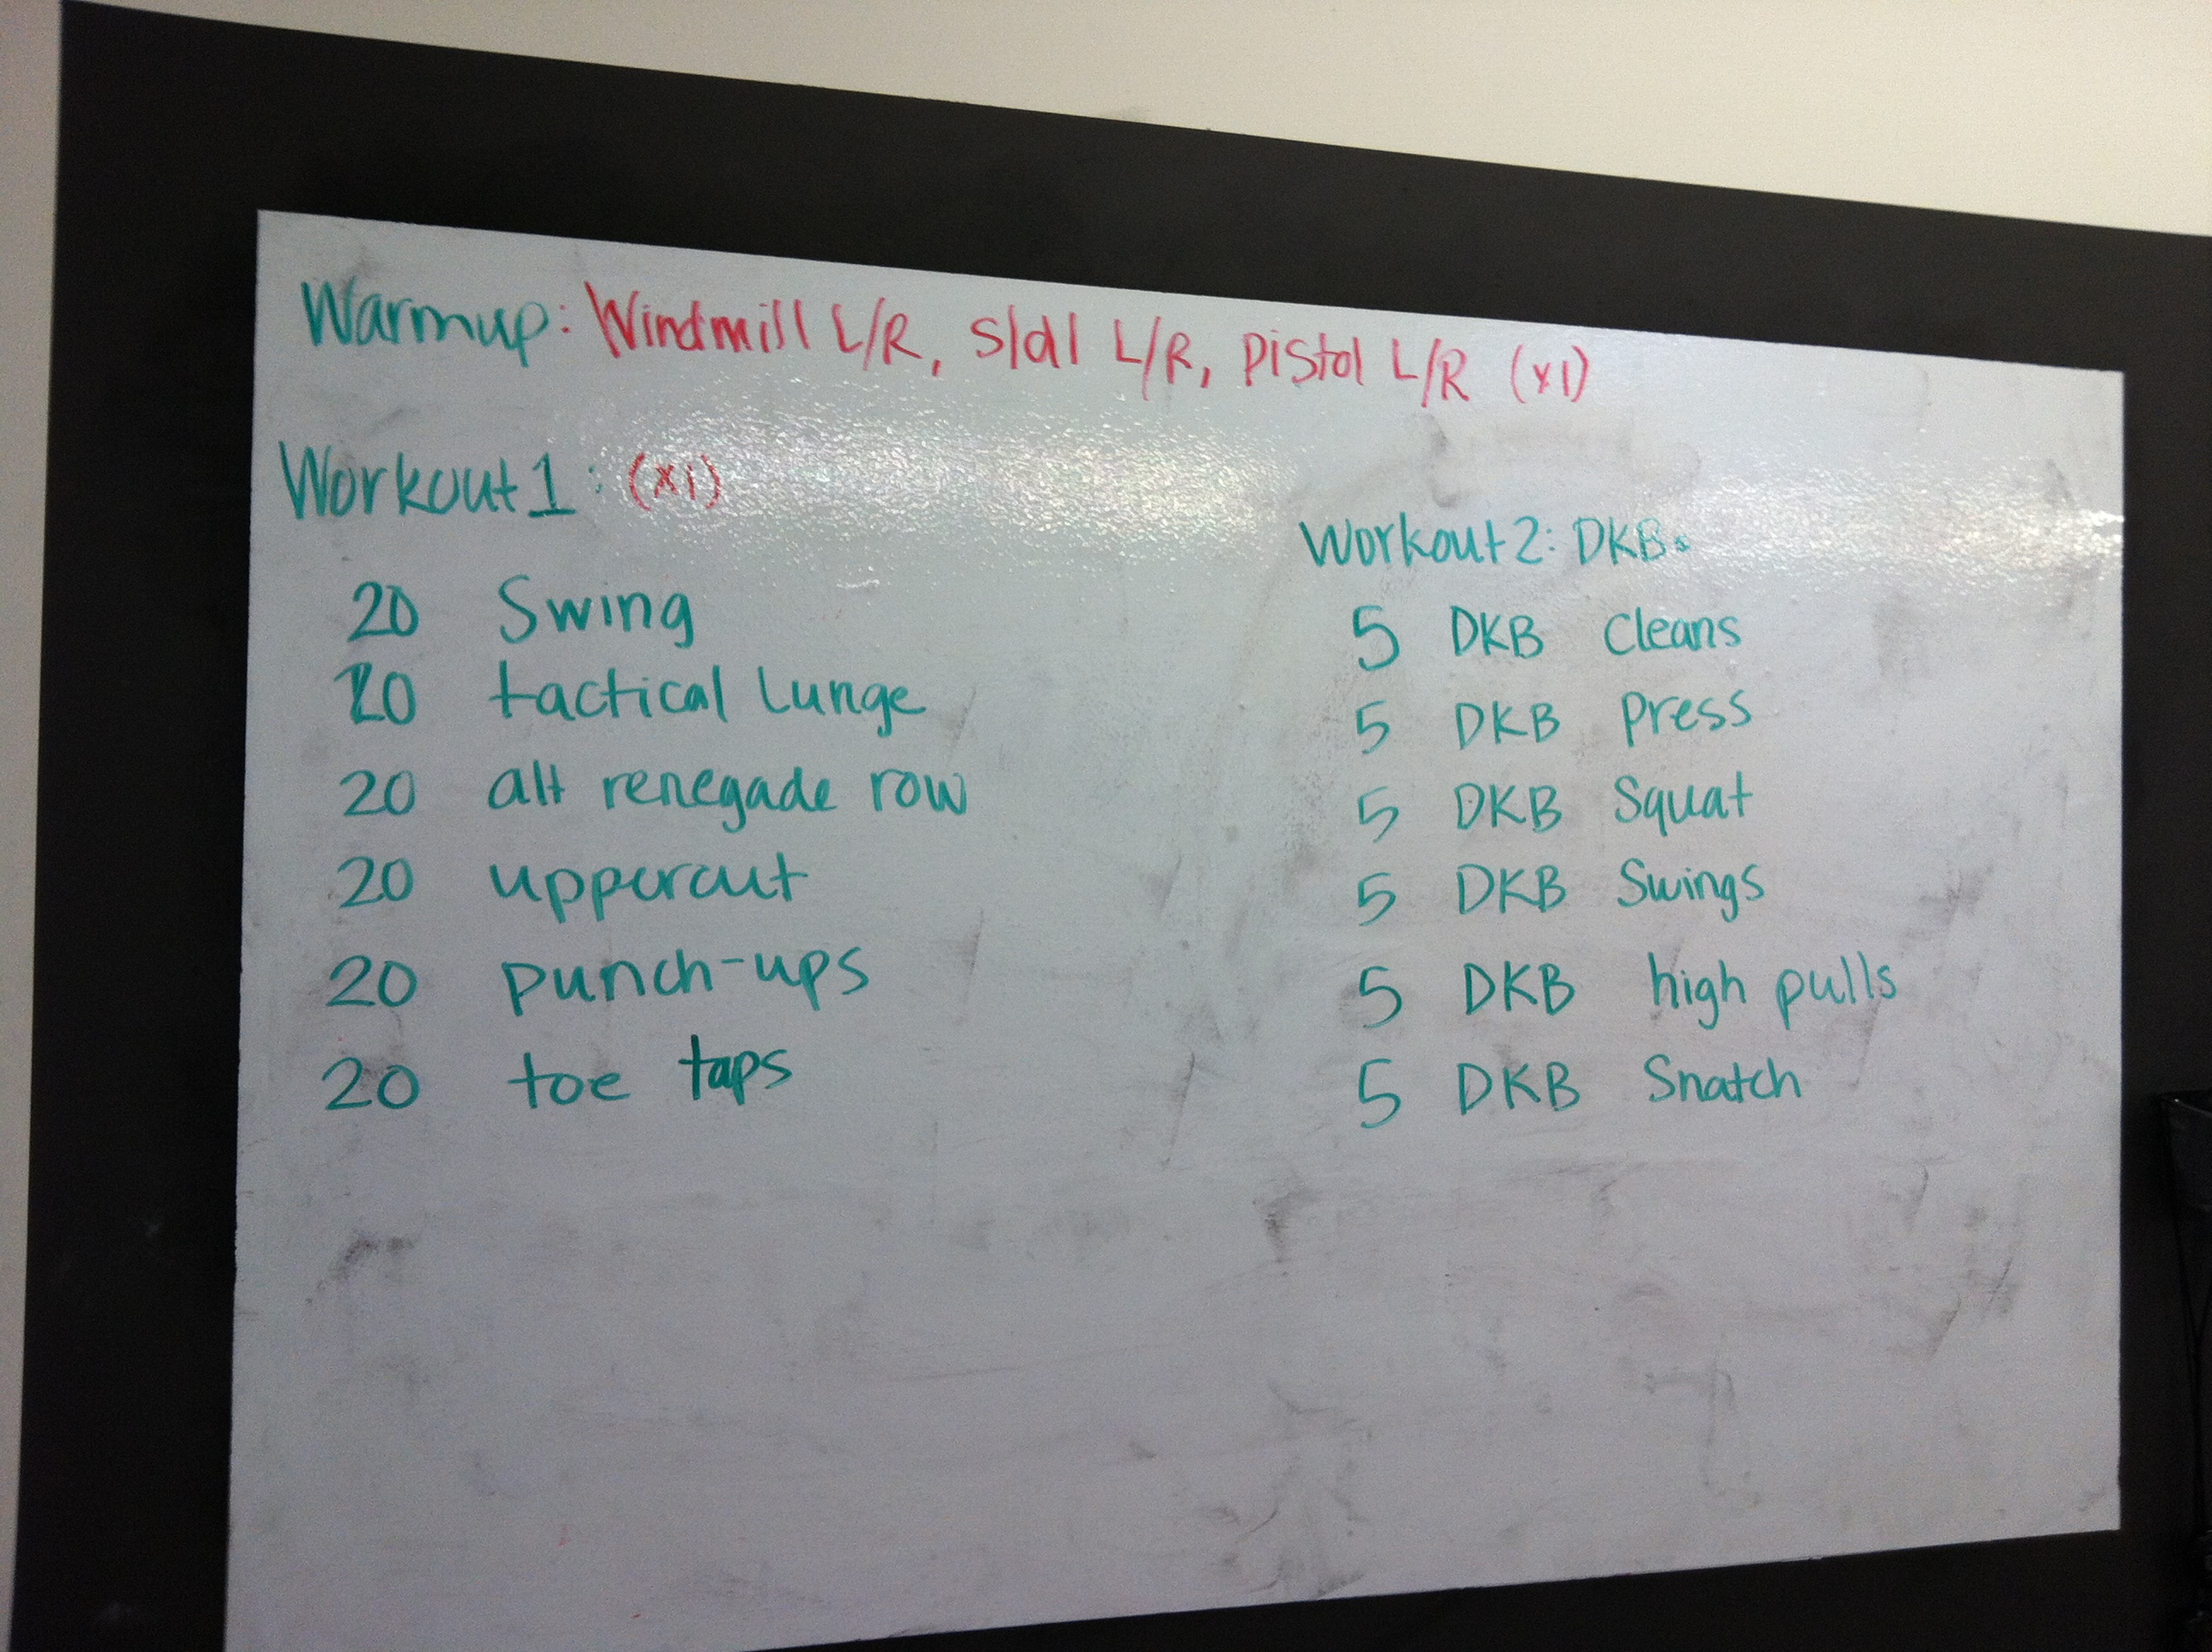 Warmup: Windmill L/R, sldl L/R, Pistol L/R (x1)
Workout 1: (x1)
20 Swing
20 tactical lunge
20 alt renegade row
20 uppercut
20 punch-ups
20 toe taps
Workout 2: DKBs
5 DKB Cleans
5 DKB Press
5 DKB Squat
5 DKB Swings
5 DKB high pulls
5 DKB Snatch